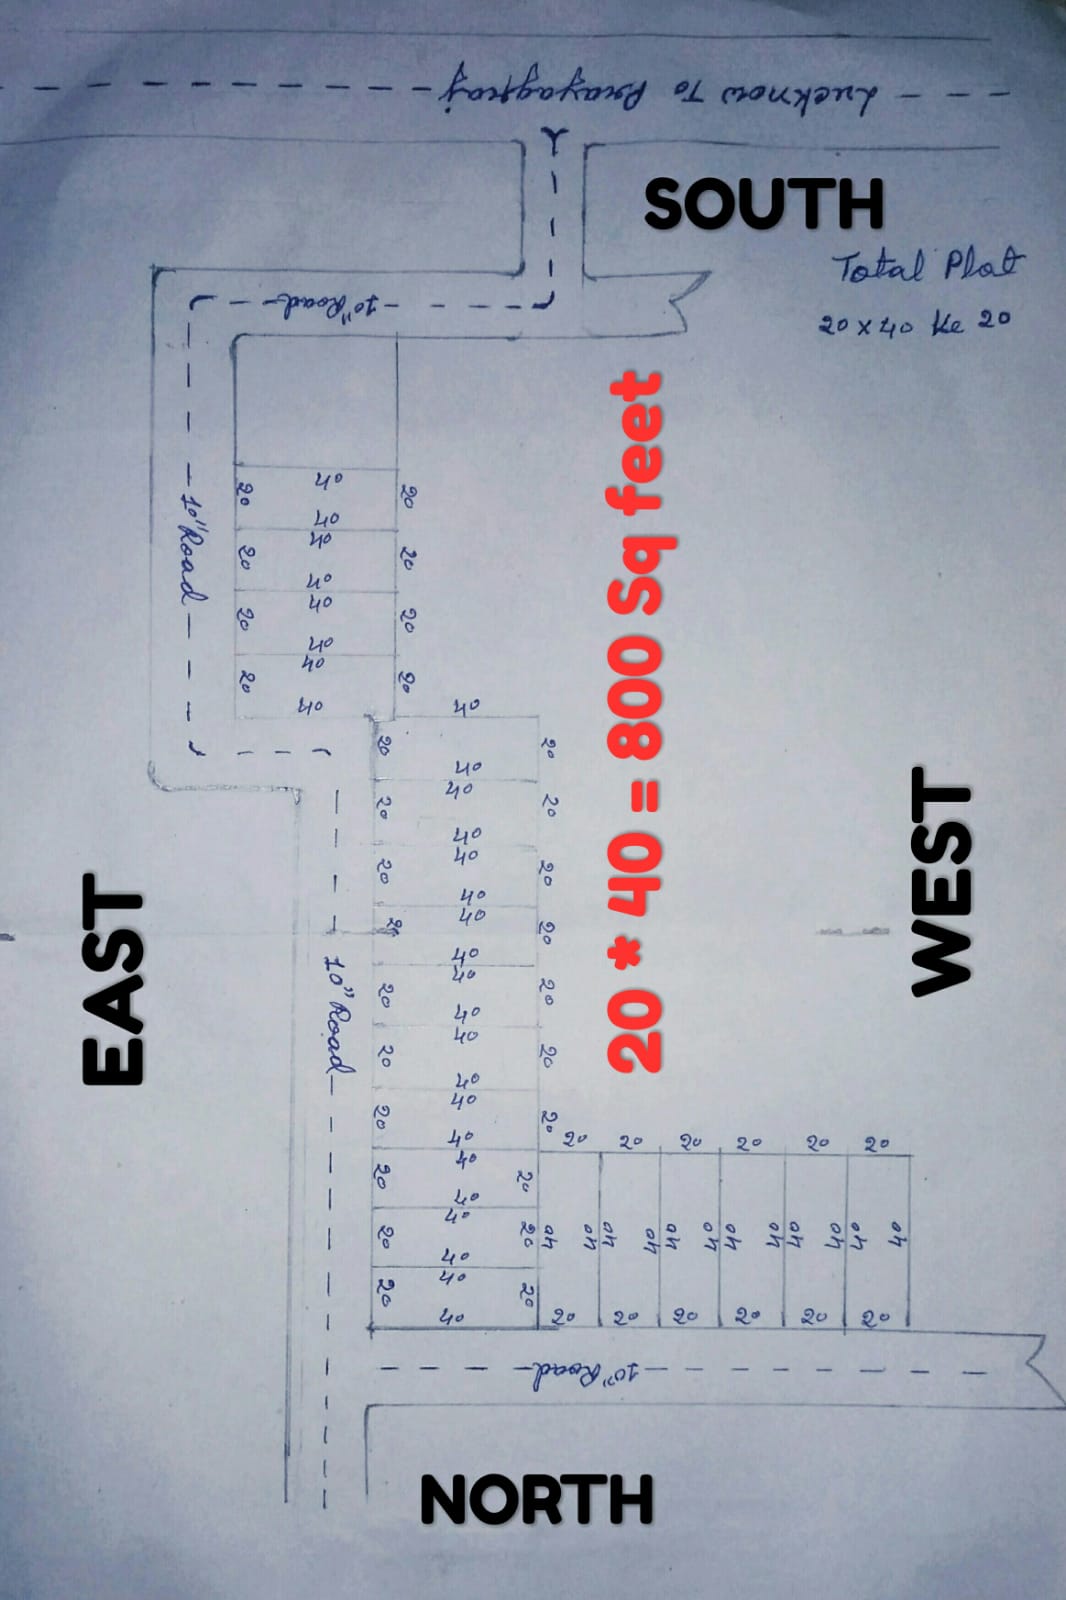 Lucknow To Prayagraj
SOUTH
Total Plot
20 x 40 Ke 20
10" Road
10" Road
40
20 20
40
40
20 20
40
40
20 20
40
40
20 20
40
40
20 20
40
40
20 20
40
40
20 20
40
40
20 20
40
40
20 20
40
40
20 20
40
40
20 20
40
40
20 20
40
40
20 20
40
40
20 20
40
20 20 20 20 20 20
40 40 40 40 40 40 40 40 40 40 40 40
20 20 20 20 20 20
20 * 40 = 800 Sq feet
EAST
WEST
10" Road
10" Road
NORTH